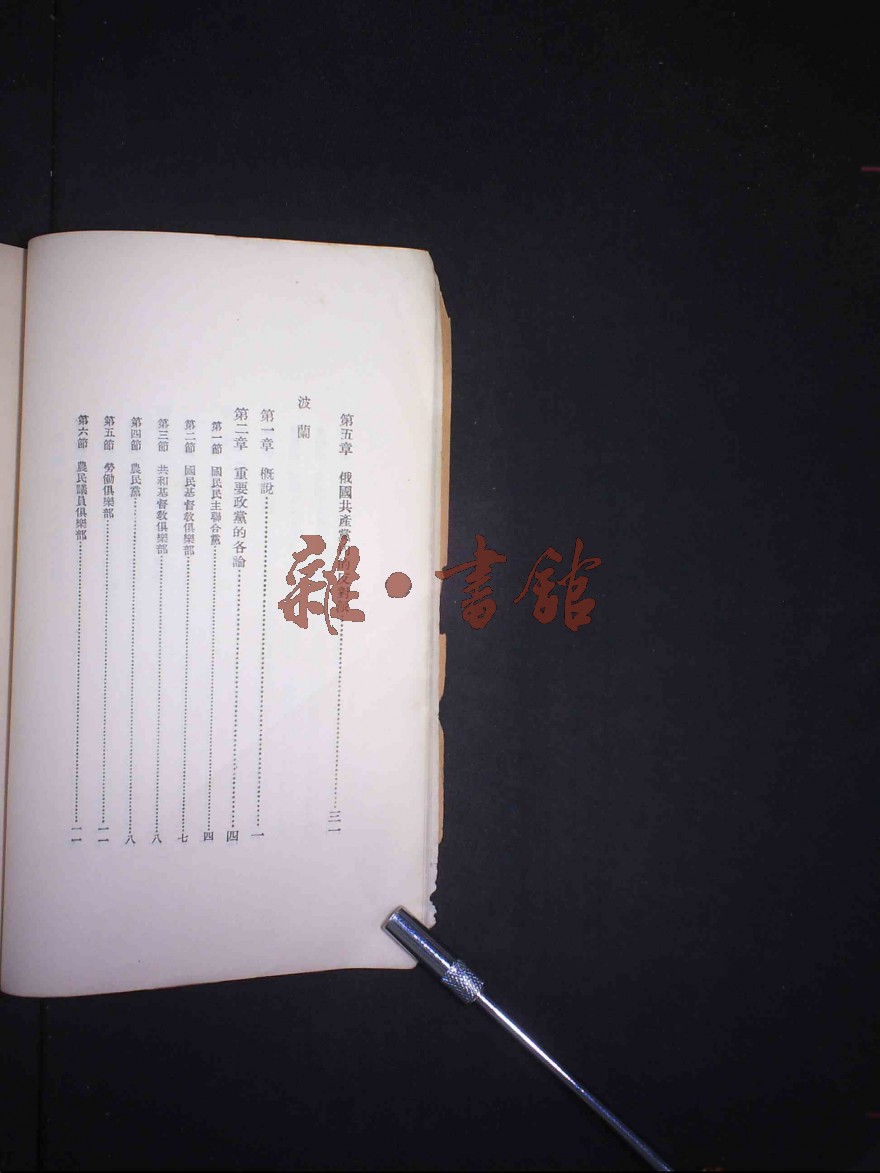 第五章　俄國共產黨的反對派…三一
波蘭
第一章　概說…一
第二章　重要政黨的各論…四
第一節　國民民主聯合黨…四
第二節　國民基督敎俱樂部…七
第三節　共和基督敎俱樂部…八
第四節　農民黨…八
第五節　勞働俱樂部…一一
第六節　農民議員俱樂部…一一
雜·書館